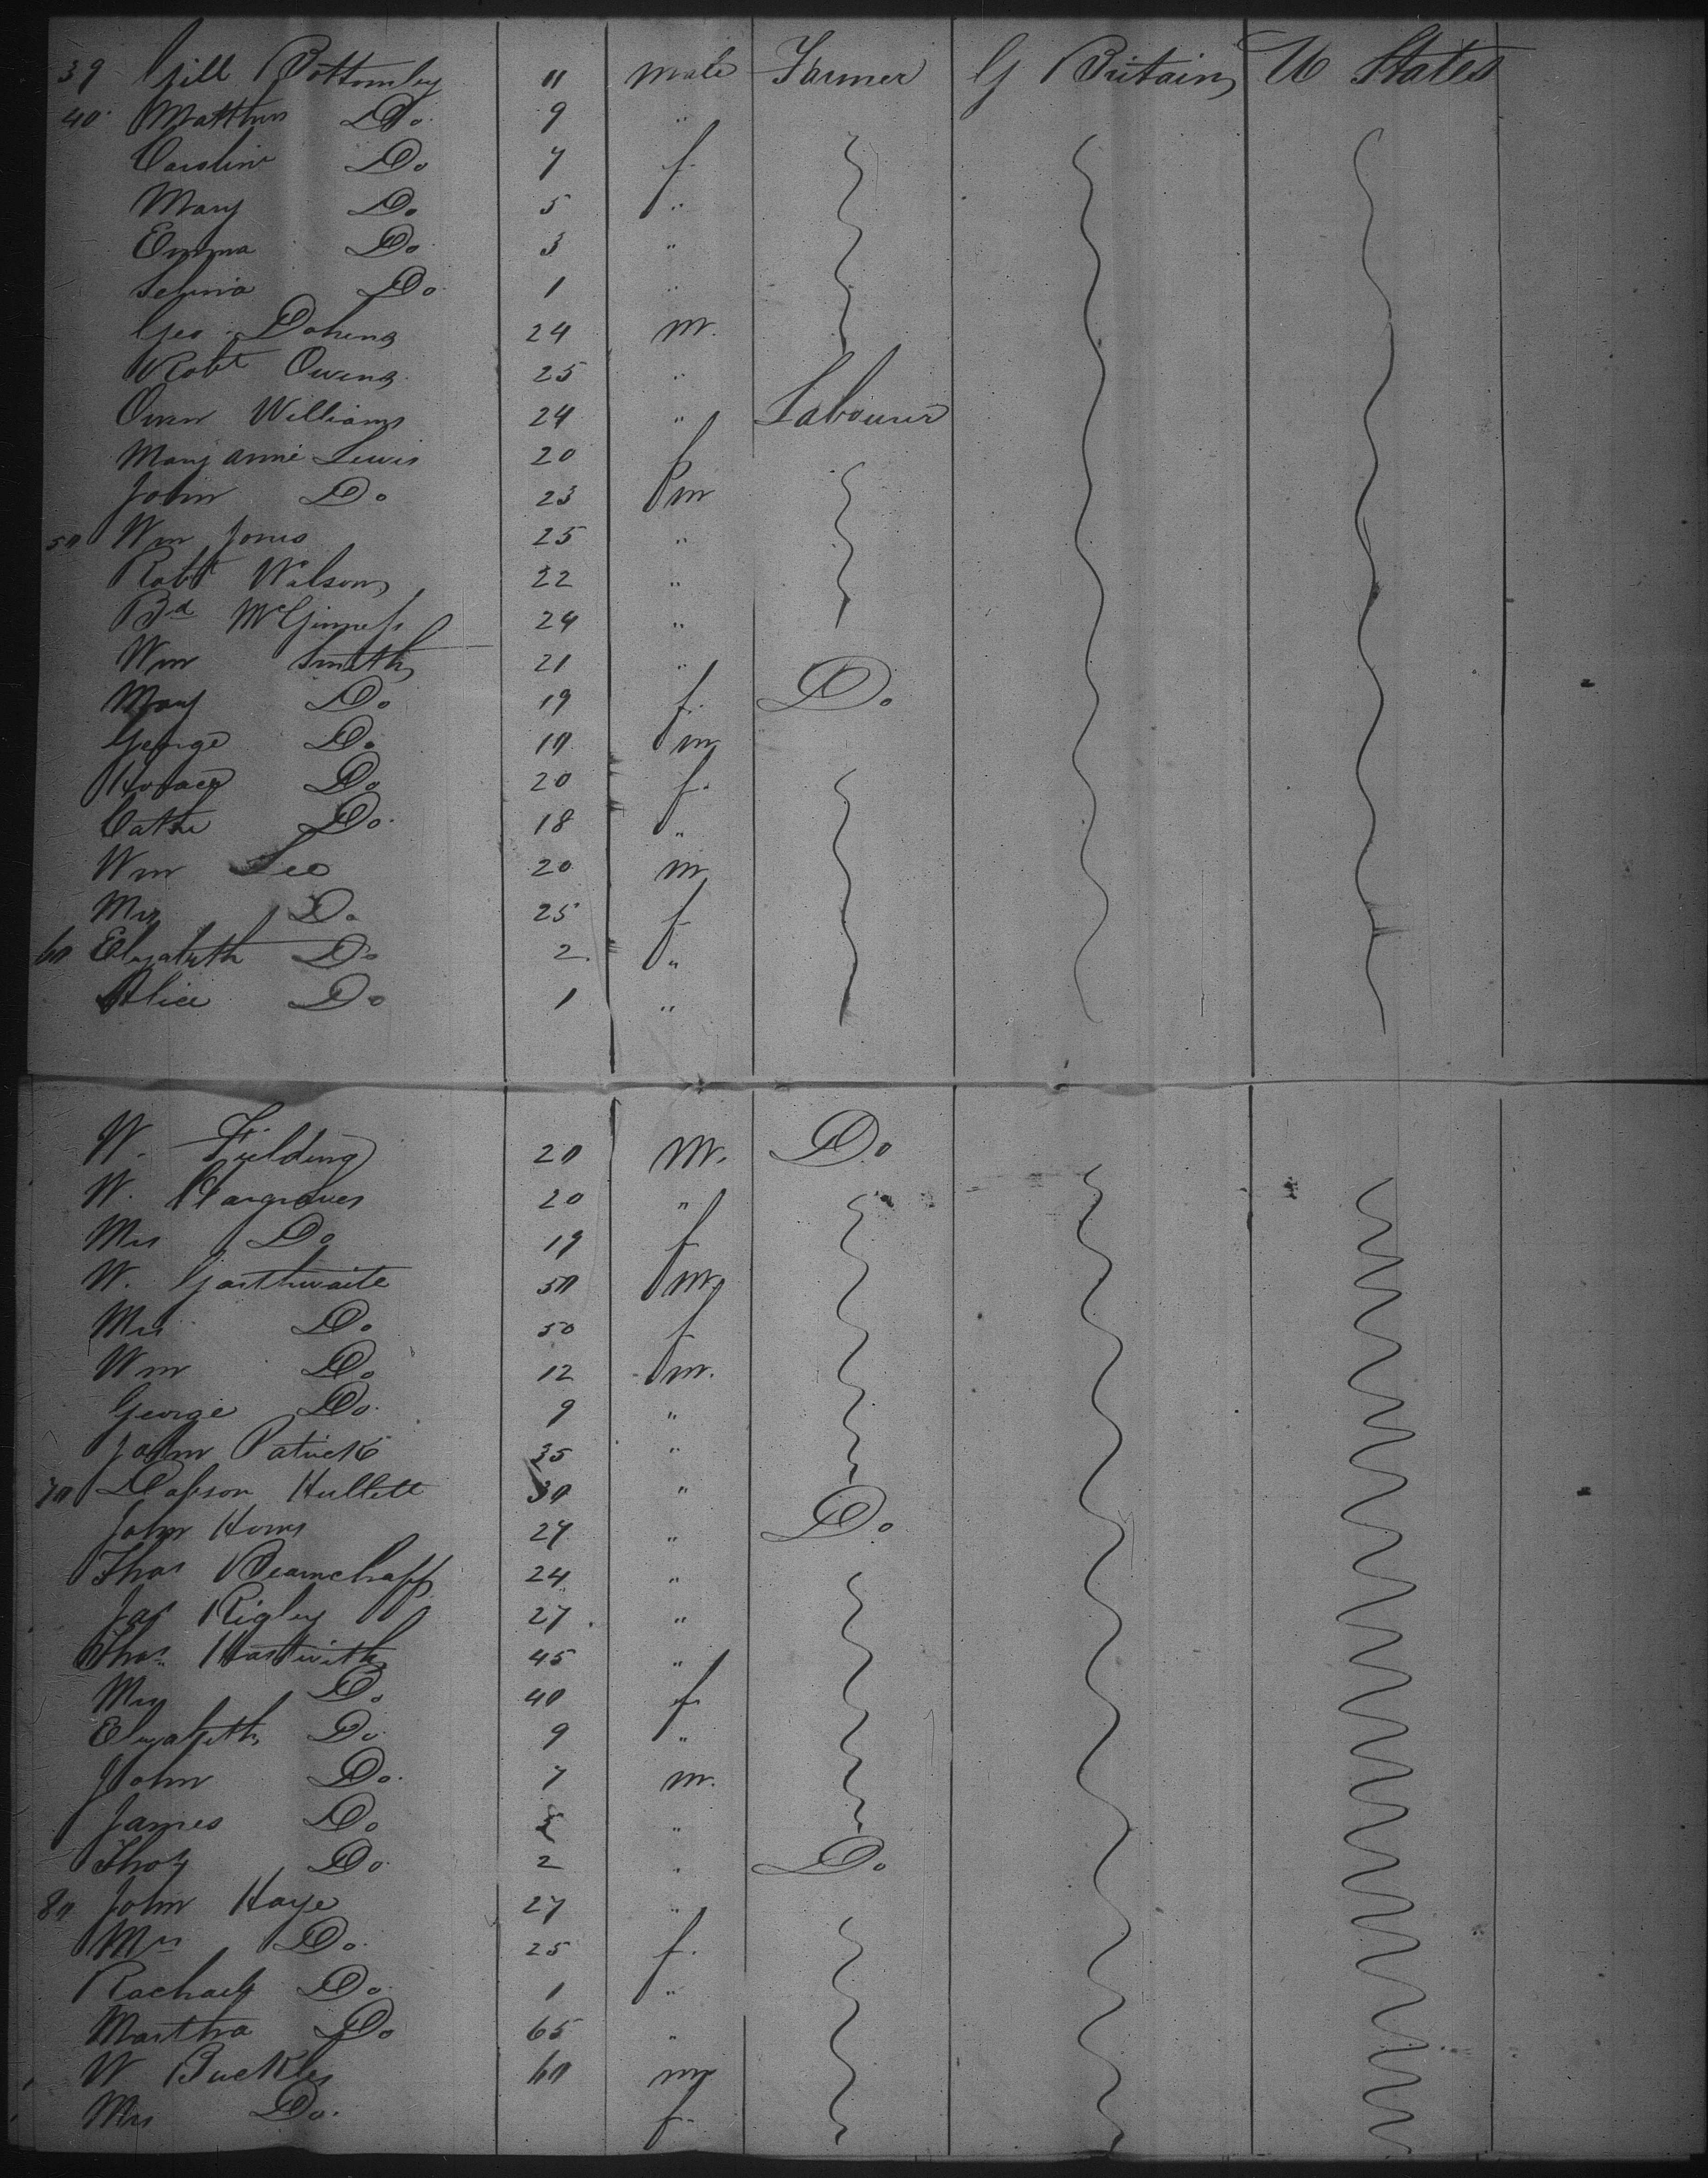 39 Gill Bottomley 11 male Farmer G Britain U States
40 Matthew Do 9 "
Caroline Do 7 f
Mary Do 5 "
Emma Do 3 "
Selina Do 1 "
Geo. 24 m.
Robt Owens 25 "
Owen Williams 24 " Labourer
Mary anne Lewis 20 f
John Do 23 m
50 Wm Jones 25 "
Robt Watson 22 "
Bd McGinness 24 "
Wm Smith 21 "
Mary Do 19 f. Do
George Do 10 m
Do 20 f.
Cathe Do 18 "
Wm Lee 20 m
Mrs Do 25 f
60 Elizabeth Do 2 "
Alice Do 1 "
W. Fielding 20 m. Do
W. Hargraves 20 "
Mrs Do 19 f
W. Garthwaite 50 m.
Mrs Do 50 f
Wm Do 12 m.
George Do 9 "
John Patrick 35 "
70 Hullett 30 "
John 27 " Do
Thos 24 "
Jas Rigley 27 "
Thos. 45 "
Mrs Do 40 f
Elizabeth Do 9 "
John Do 7 m.
James Do 5 "
Thos Do 2 " Do
80 John Haye 27 "
Mrs Do 25 f.
Rachael Do 1 "
Martha Do 65 "
W Buckley 60 m
Mrs Do. f